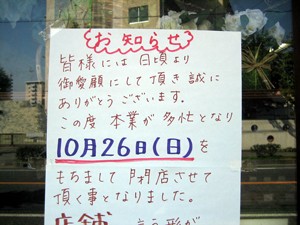 お知らせ
皆様には日頃より
御愛顧にして頂き誠に
ありがとうございます。
この度本業が多忙となり
10月26日(日)を
もちまして閉店させて
頂く事となりました。
店舗